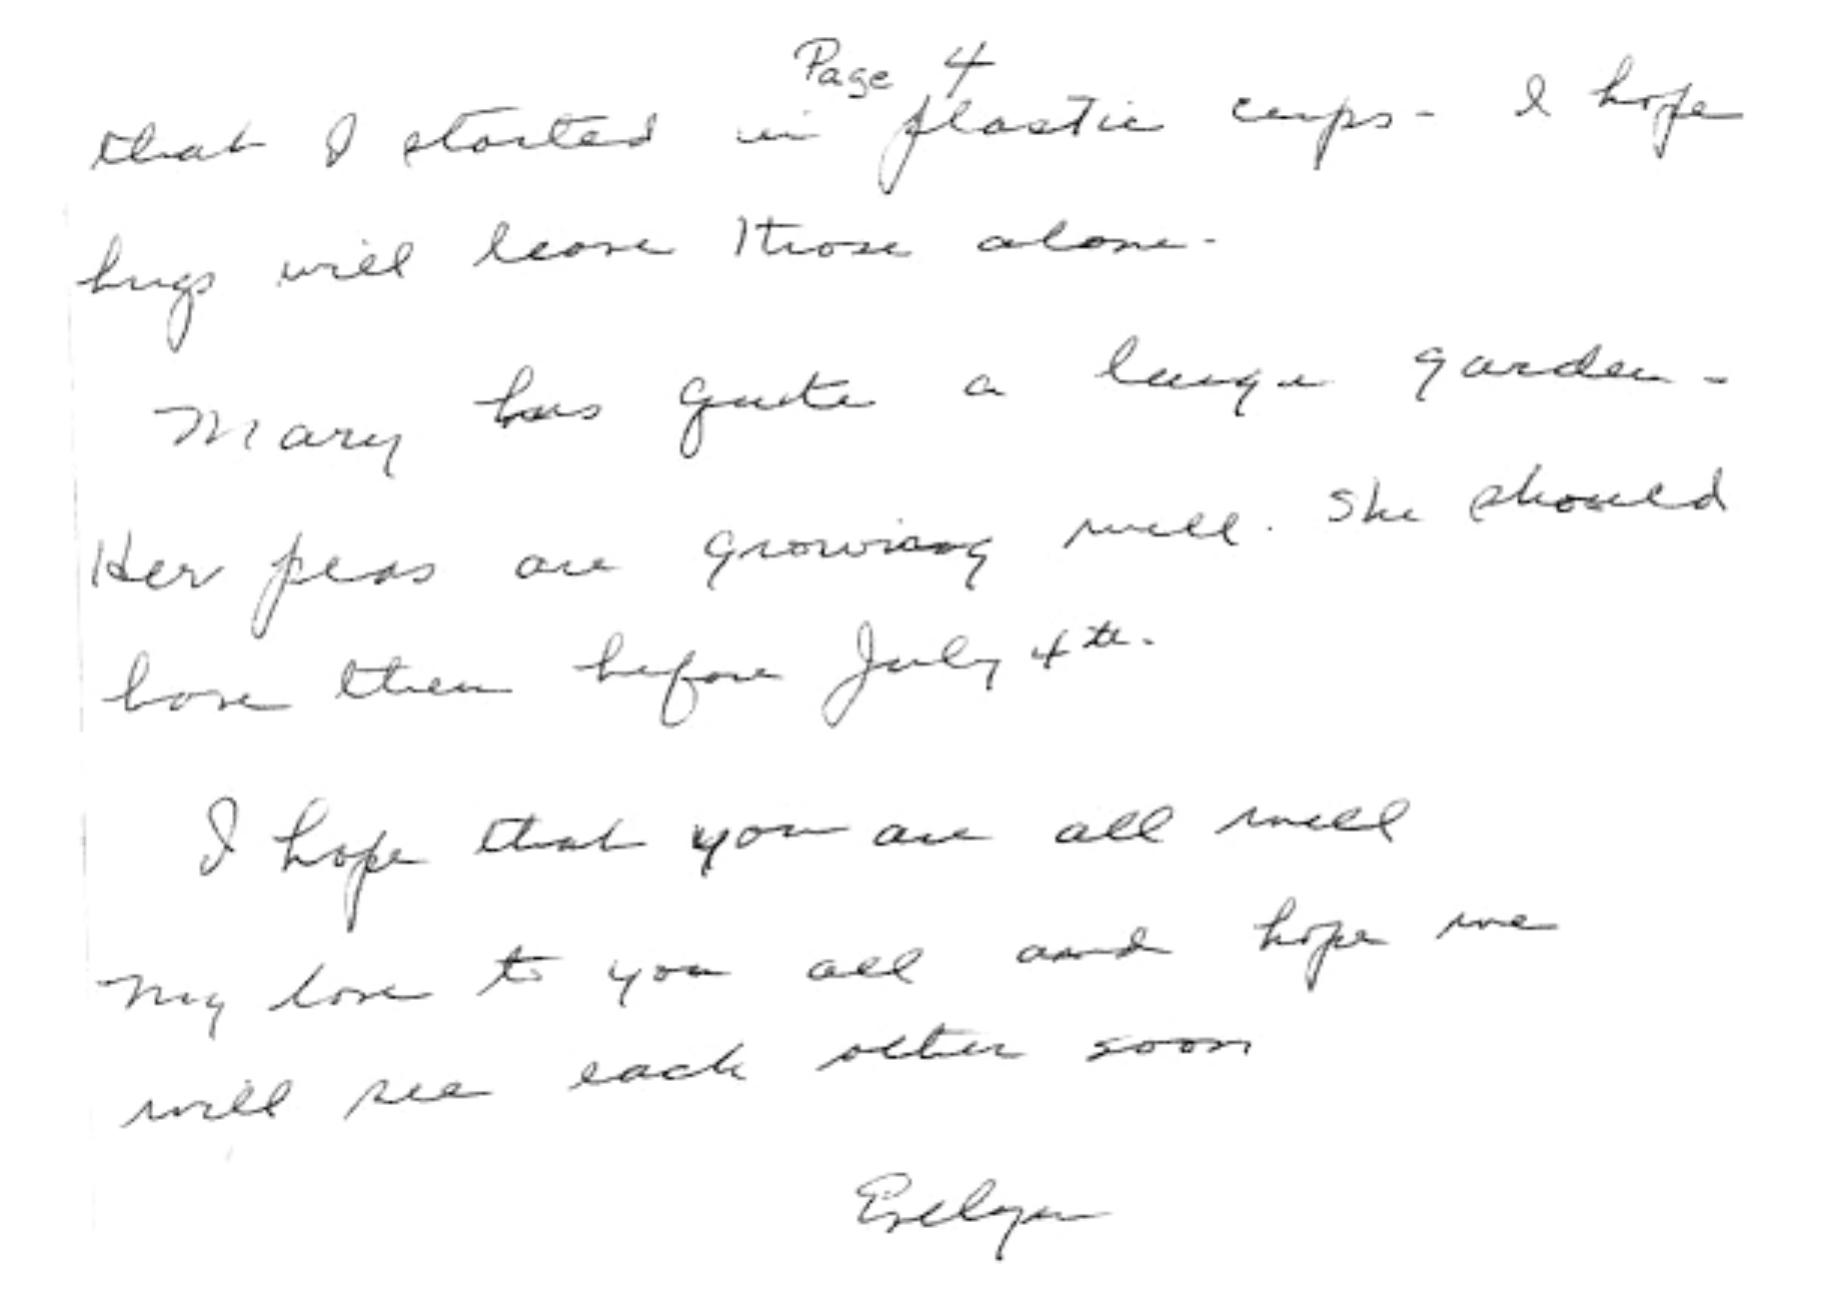 Page 4
that I started in plastic cups - I hope
bugs will leave those alone.
Mary has quite a large garden -
Her peas are growing well. She should
have them before July 4th.
I hope that you are all well
My love to you all and hope we
will see each other soon
Evelyn